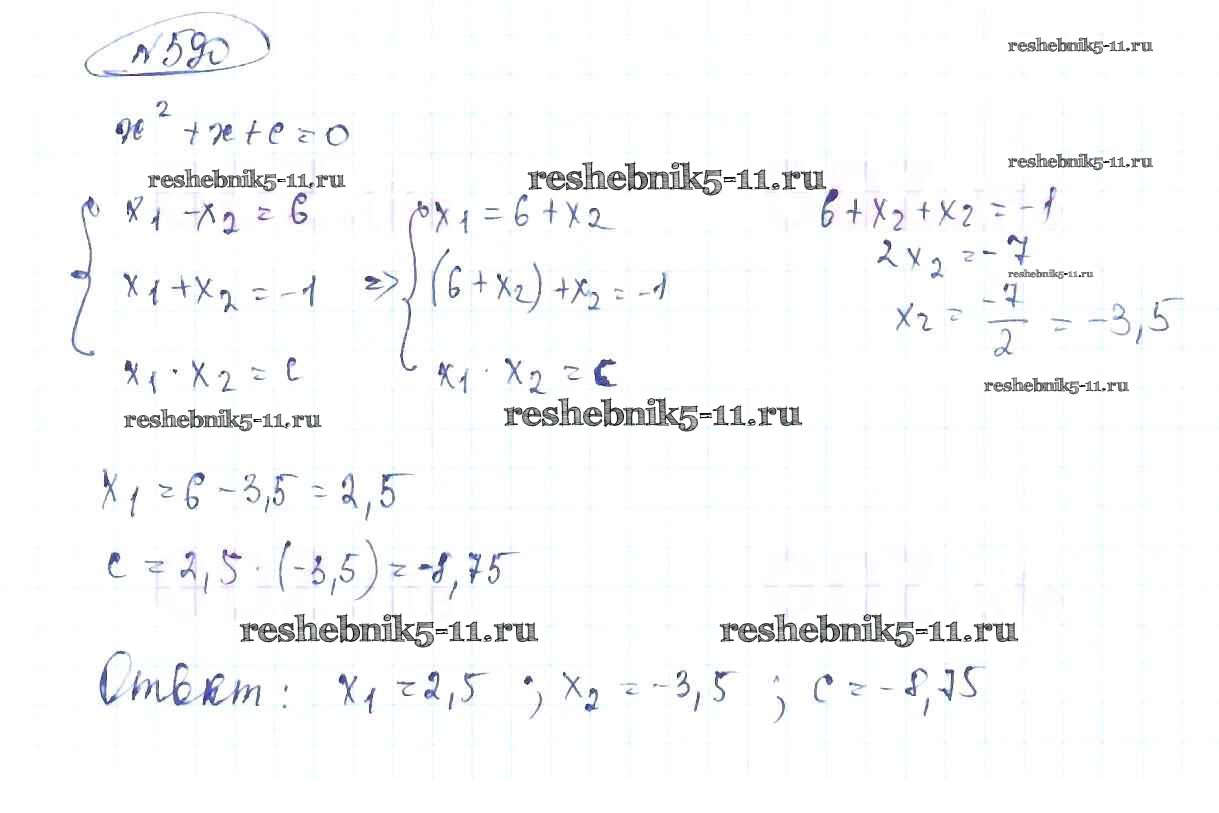 №590
reshebnik5-11.ru
x² + x + c = 0
reshebnik5-11.ru reshebnik5-11.ru reshebnik5-11.ru
{ x₁ - x₂ = 6 { x₁ = 6 + x₂ 6 + x₂ + x₂ = -1
2x₂ = -7
reshebnik5-11.ru
x₁ + x₂ = -1 => (6 + x₂) + x₂ = -1
x₂ = -7/2 = -3,5
x₁ · x₂ = c x₁ · x₂ = c
reshebnik5-11.ru
reshebnik5-11.ru reshebnik5-11.ru
x₁ = 6 - 3,5 = 2,5
c = 2,5 · (-3,5) = -8,75
reshebnik5-11.ru reshebnik5-11.ru
Ответ: x₁ = 2,5 ; x₂ = -3,5 ; c = -8,75